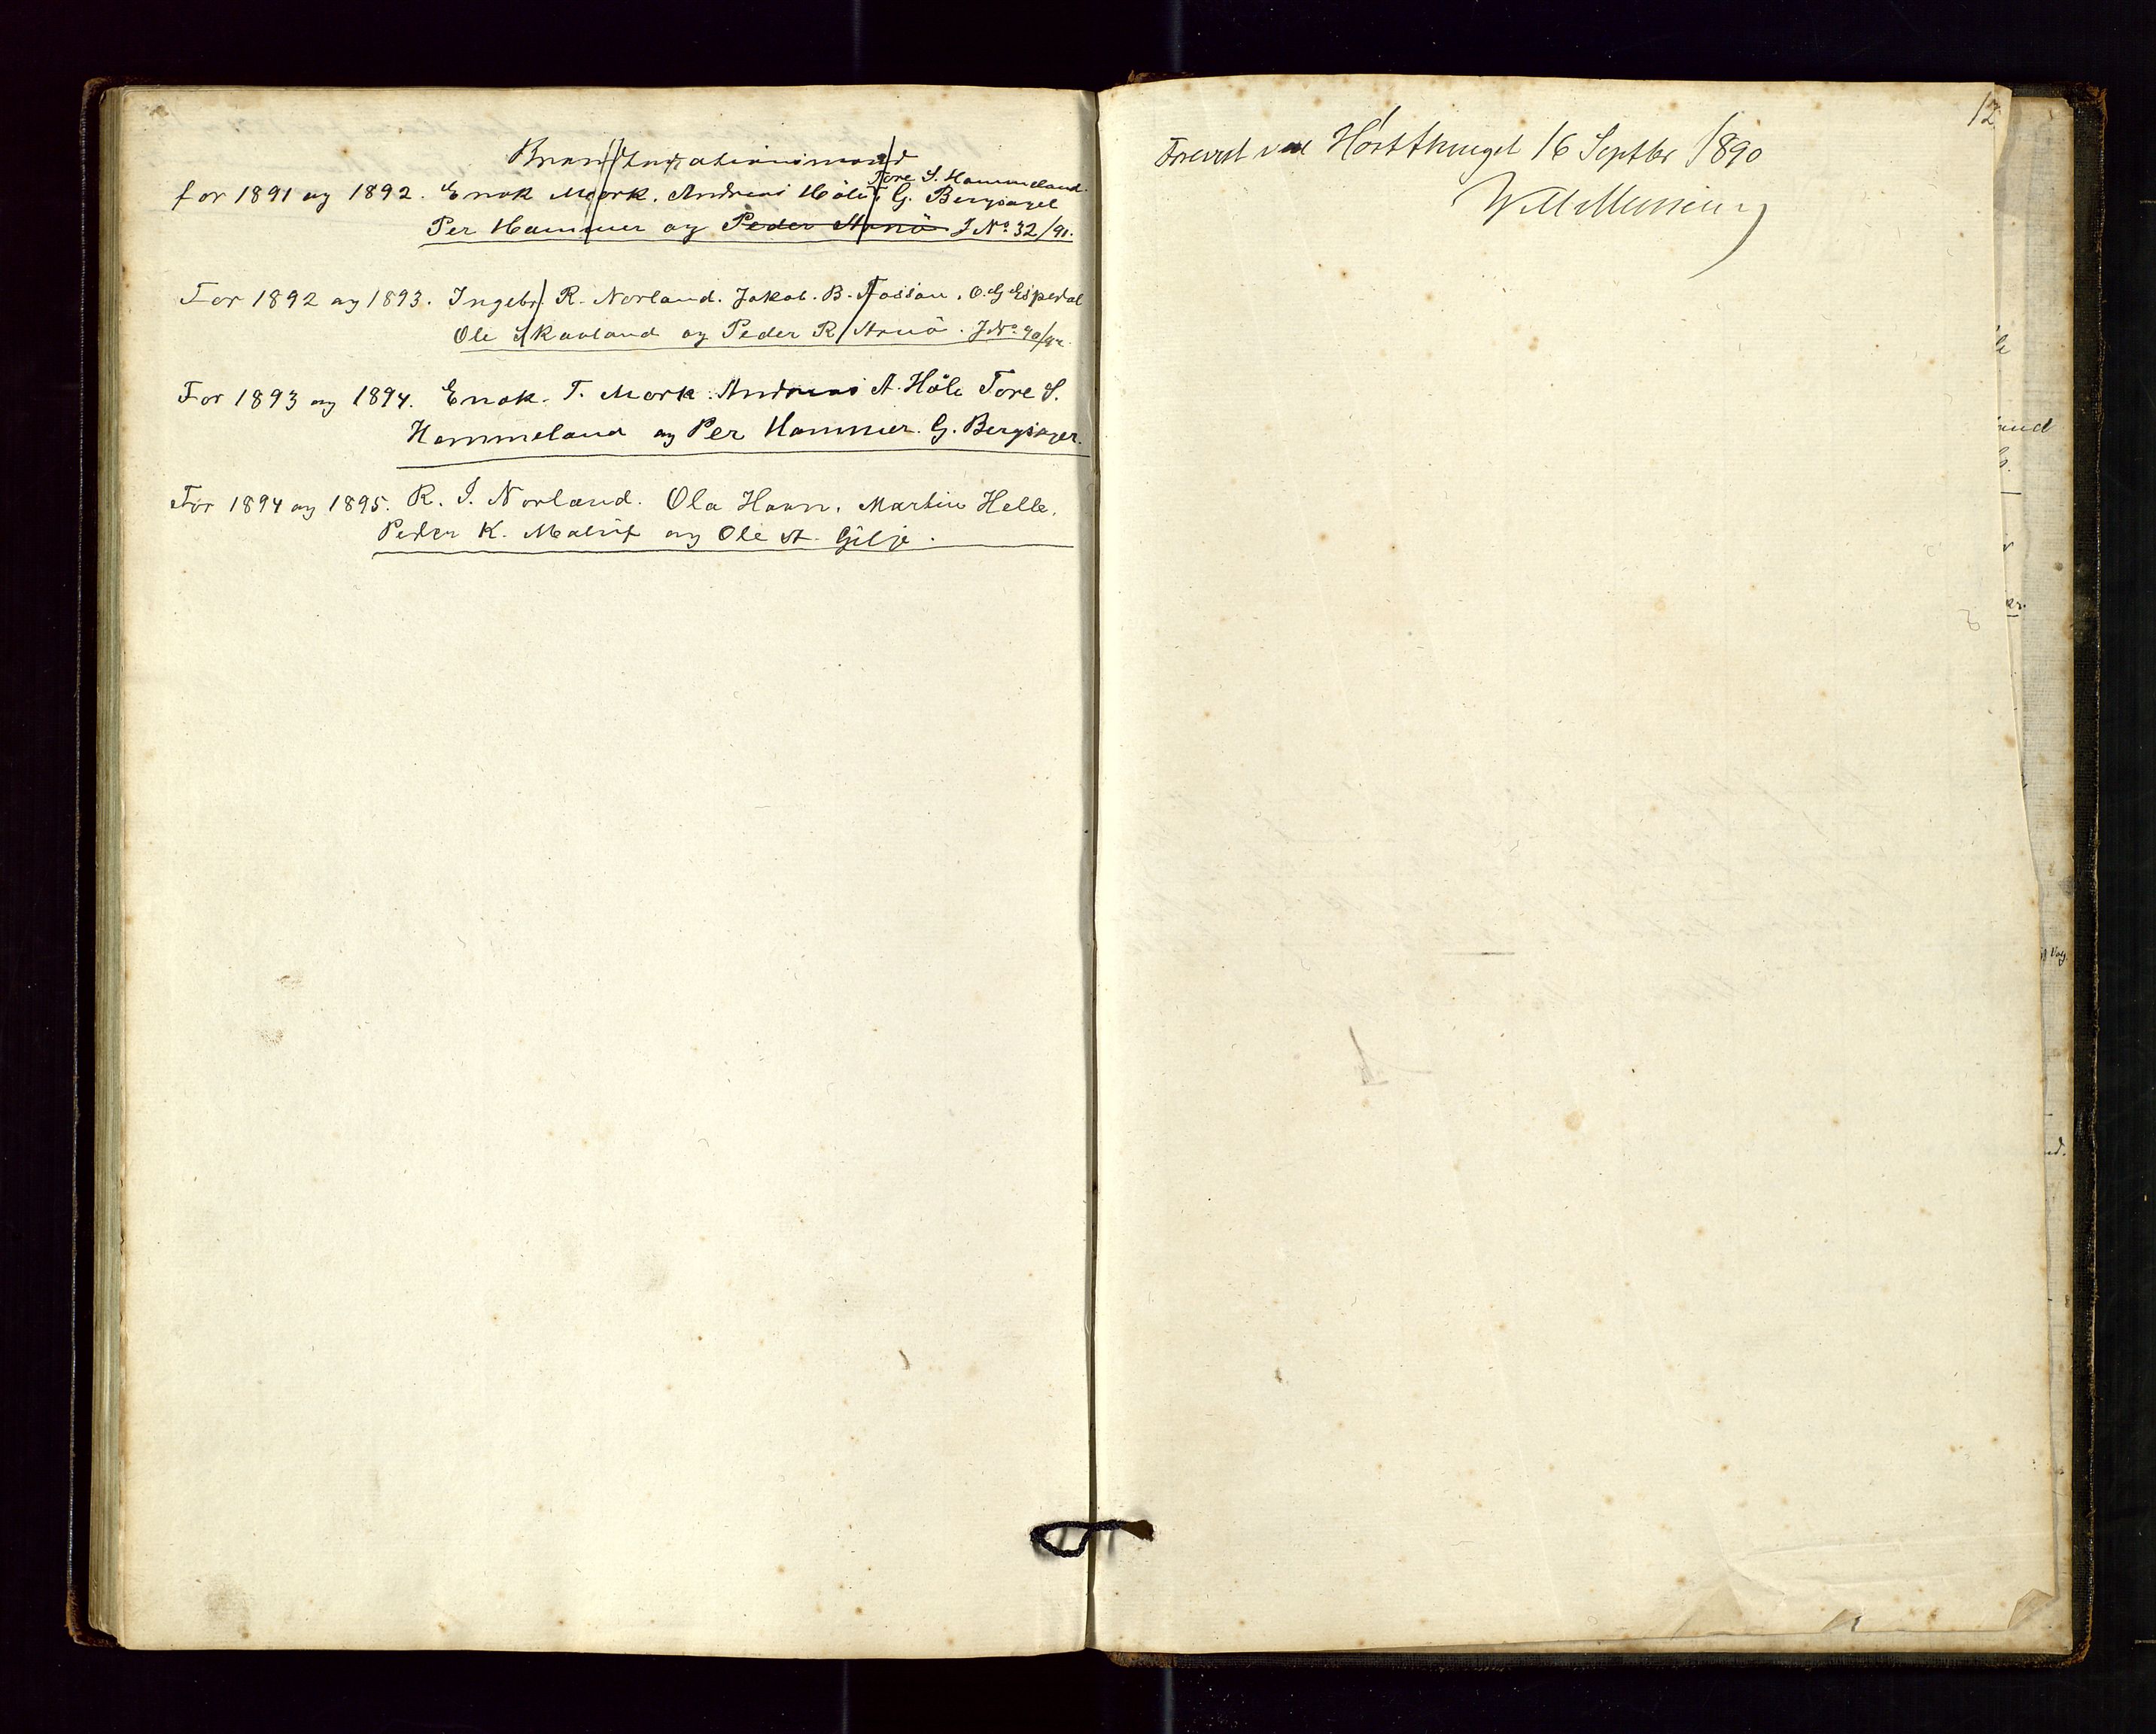 Brandtaxationsmænd
Tore S. Hammeland.
for 1891 og 1892. Enok Mork. Andreas Høle G. Bergsagel
Per Hammer og Peder Arnö J No 32/91.
For 1892 og 1893. Ingebr. R. Norland. Jakob. B. Fossan. O. G. Espedal
Ole Skavland og Peder R. Arnö. J No 40/92.
For 1893 og 1894. Enok. T. Mork. Andreas A. Höle Tore S.
Hammeland og Per Hammer. G. Bergsager.
For 1894 og 1895. R. I. Norland. Ola Haan. Martin Helle.
Peder K. og Ole A. Gilje.
12
Forevist ved Høstthinget 16 Septbr 1890